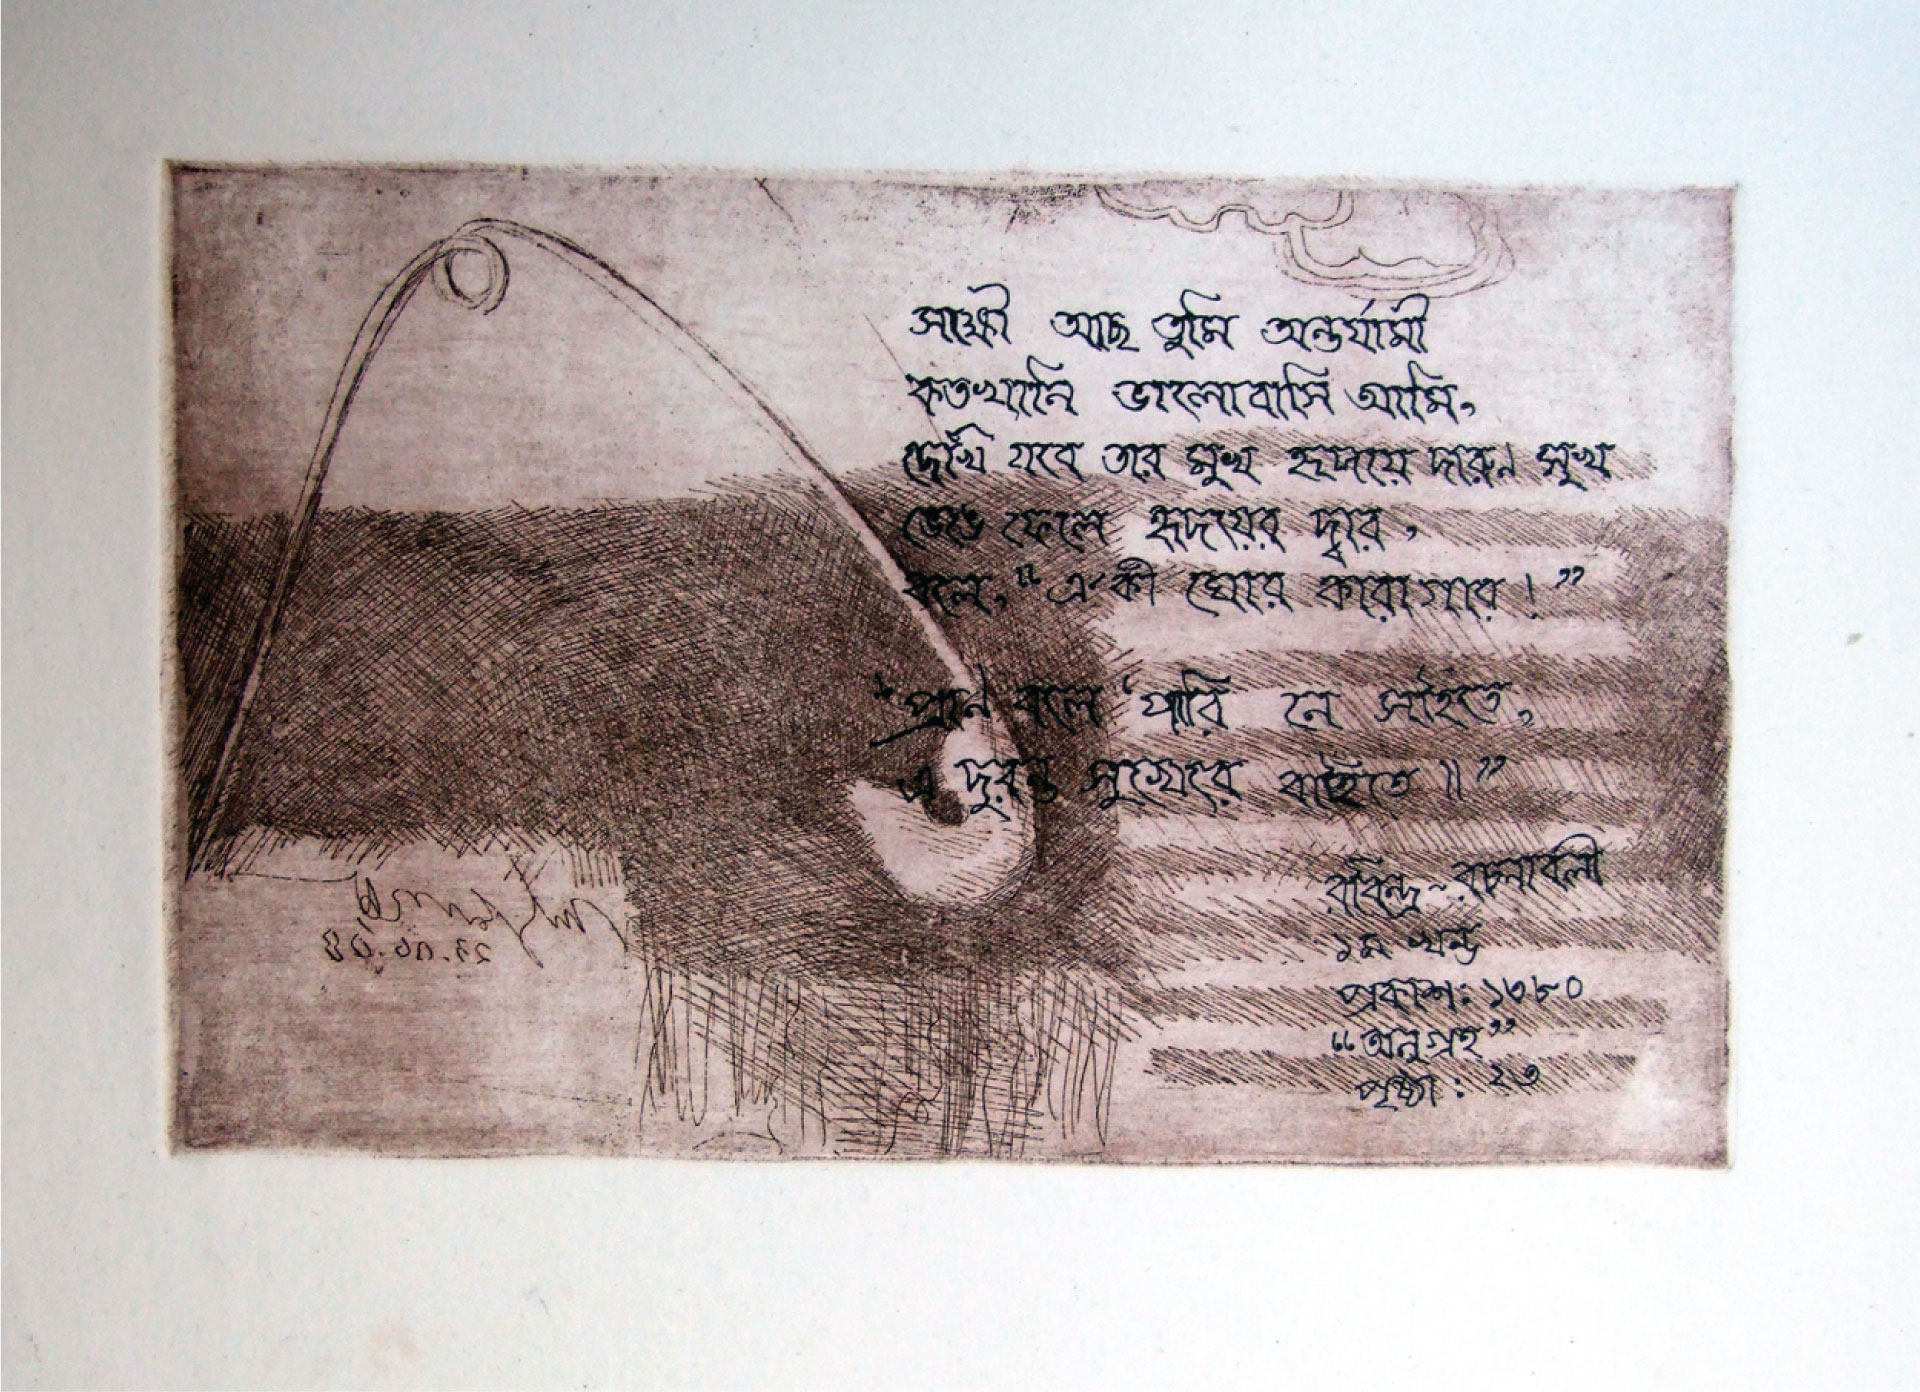 সাক্ষী আছ তুমি অন্তর্যামী
কতখানি ভালোবাসি আমি,
দেখি যবে তার মুখ হৃদয়ে দারুণ সুখ
ভেঙে ফেলে হৃদয়ের দ্বার,
বলে, “এ কী ঘোর কারাগার!”
‘প্রাণ বলে ‘পারি নে সহিতে,
এ দুরন্ত সুখেরে বহিতে॥”
রবিন্দ্র-রচনাবলী
১ম খন্ড
প্রকাশ: ১৩৮০
“অনুগ্রহ”
পৃষ্ঠা: ২৩